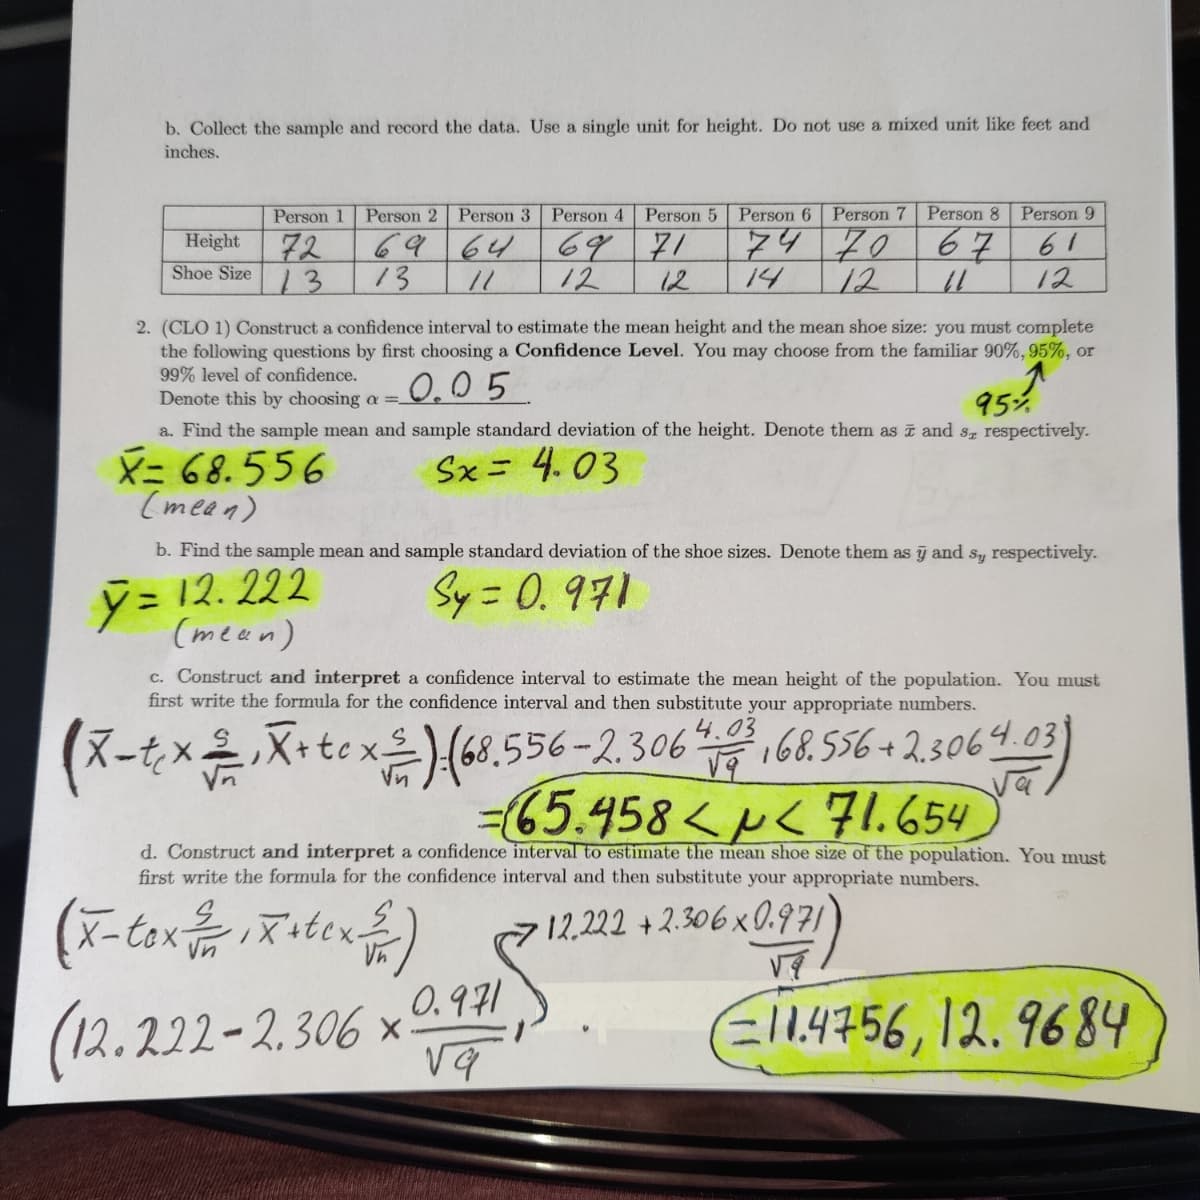 b. Collect the sample and record the data. Use a single unit for height. Do not use a mixed unit like feet and
inches.
Person 1 Person 2 Person 3 Person 4 Person 5 Person 6 Person 7 Person 8 Person 9
Height 72 69 64 69 71 74 70 67 61
Shoe Size 13 13 11 12 12 14 12 11 12
2. (CLO 1) Construct a confidence interval to estimate the mean height and the mean shoe size: you must complete
the following questions by first choosing a Confidence Level. You may choose from the familiar 90%, 95%, or
99% level of confidence.
Denote this by choosing α = 0.05.
95%
a. Find the sample mean and sample standard deviation of the height. Denote them as x̄ and sₓ respectively.
x̄ = 68.556 Sx = 4.03
(mean)
b. Find the sample mean and sample standard deviation of the shoe sizes. Denote them as ȳ and s_y respectively.
ȳ = 12.222 Sy = 0.971
(mean)
c. Construct and interpret a confidence interval to estimate the mean height of the population. You must
first write the formula for the confidence interval and then substitute your appropriate numbers.
(x̄ - tc × s/√n, x̄ + tc × s/√n) = (68.556 - 2.306 4.03/√9, 68.556 + 2.306 4.03/√9)
= (65.458 < μ < 71.654)
d. Construct and interpret a confidence interval to estimate the mean shoe size of the population. You must
first write the formula for the confidence interval and then substitute your appropriate numbers.
(x̄ - tc × s/√n, x̄ + tc × s/√n)
(12.222 - 2.306 × 0.971/√9, → 12.222 + 2.306 × 0.971/√9)
= 11.4756, 12.9684